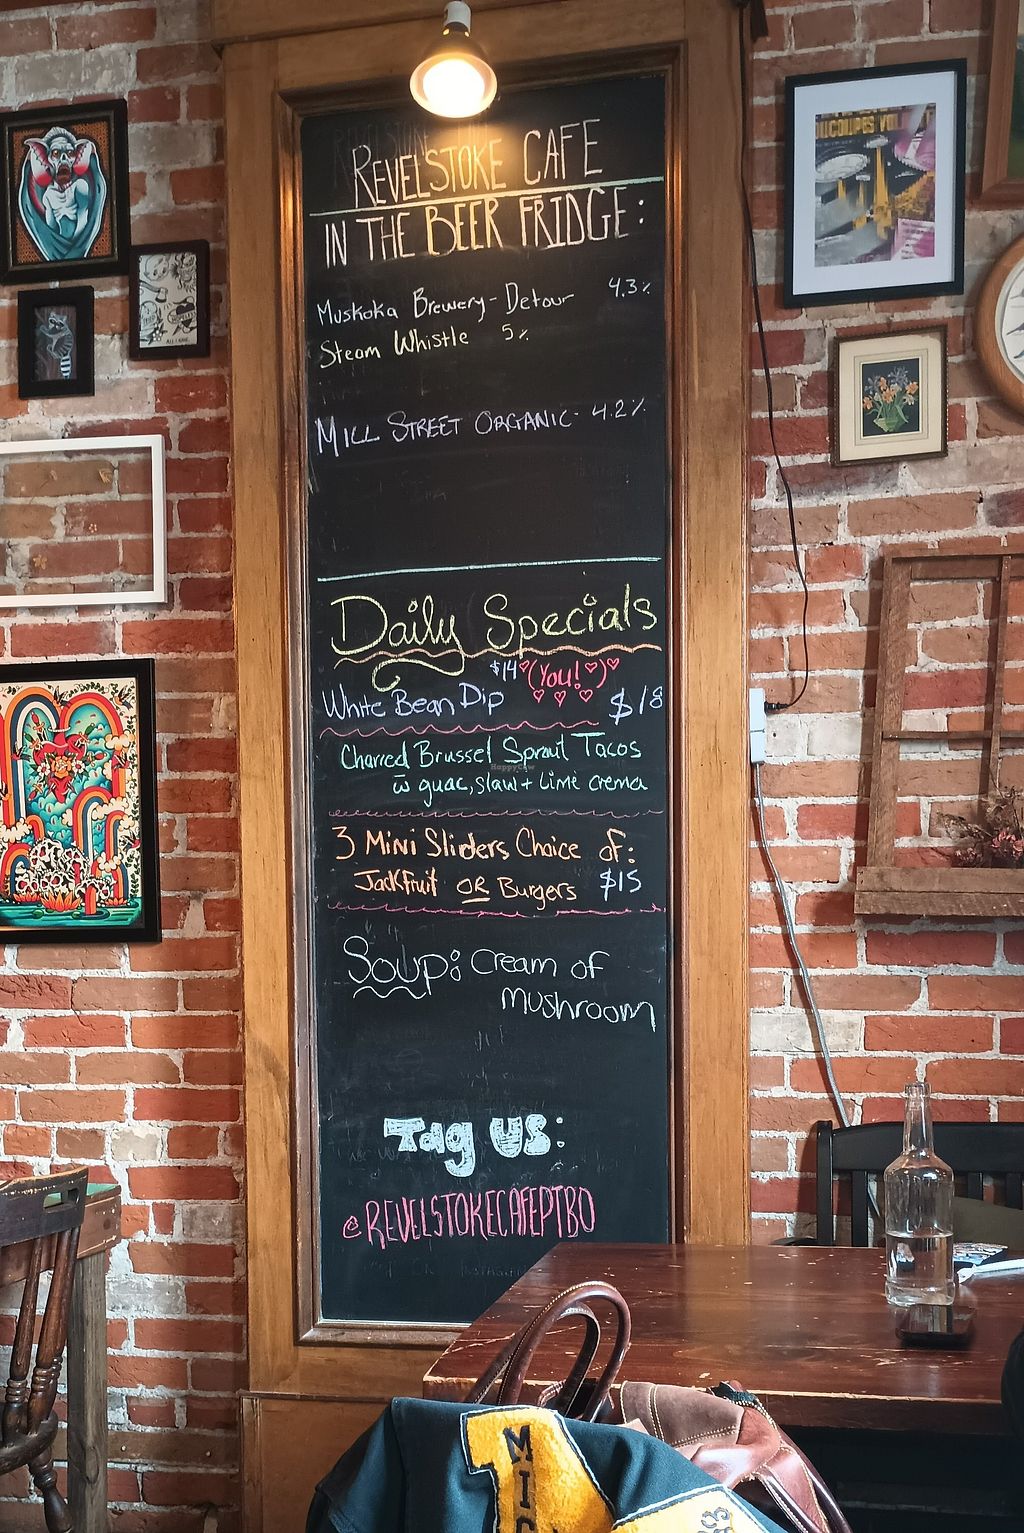 REVELSTOKE CAFE
IN THE BEER FRIDGE:
Muskoka Brewery - Detour 4.3%
Steam Whistle 5%
MILL STREET ORGANIC - 4.2%
Daily Specials
$14 (You!)
White Bean Dip $18
Charred Brussel Sprout Tacos
w̄ guac, slaw + lime crema
HappyCow
3 Mini Sliders Choice of:
Jackfruit OR Burgers $15
Soup: Cream of
mushroom
Tag US:
@REVELSTOKECAFEPTBO